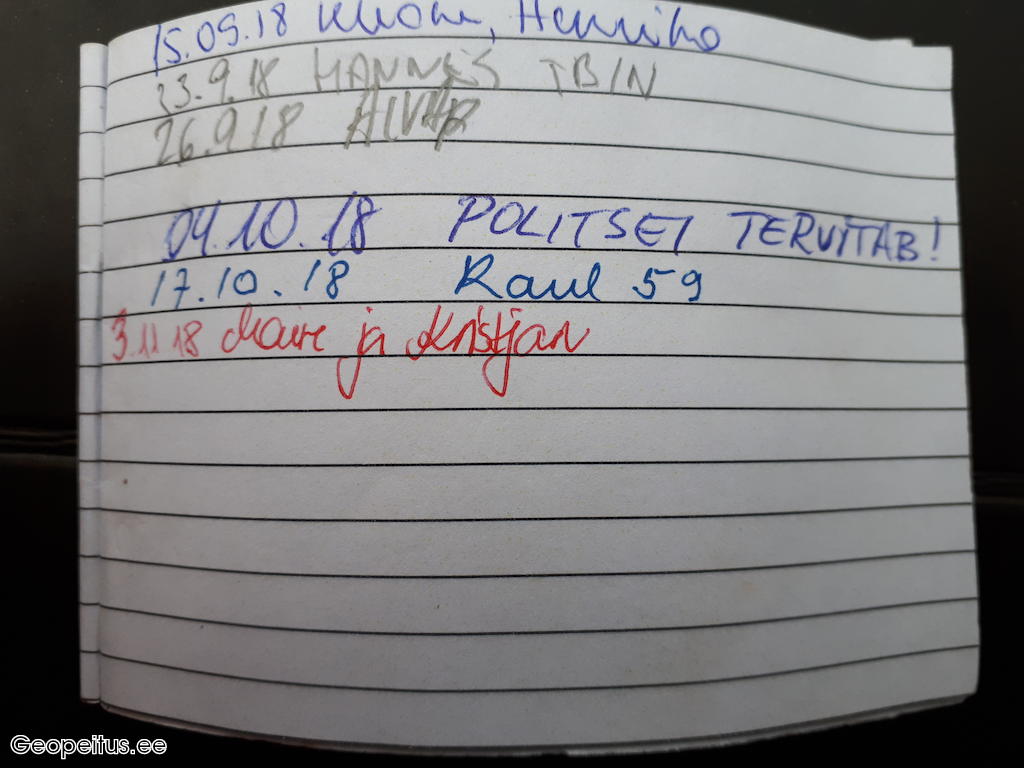 15.09.18 Henriko
23.9.18 HANNES TBIN
26.9.18 AIVAR
04.10.18 POLITSEI TERVITAB!
17.10.18 Raul 59
3.11.18 Maire ja Kristjan
Geopeitus.ee